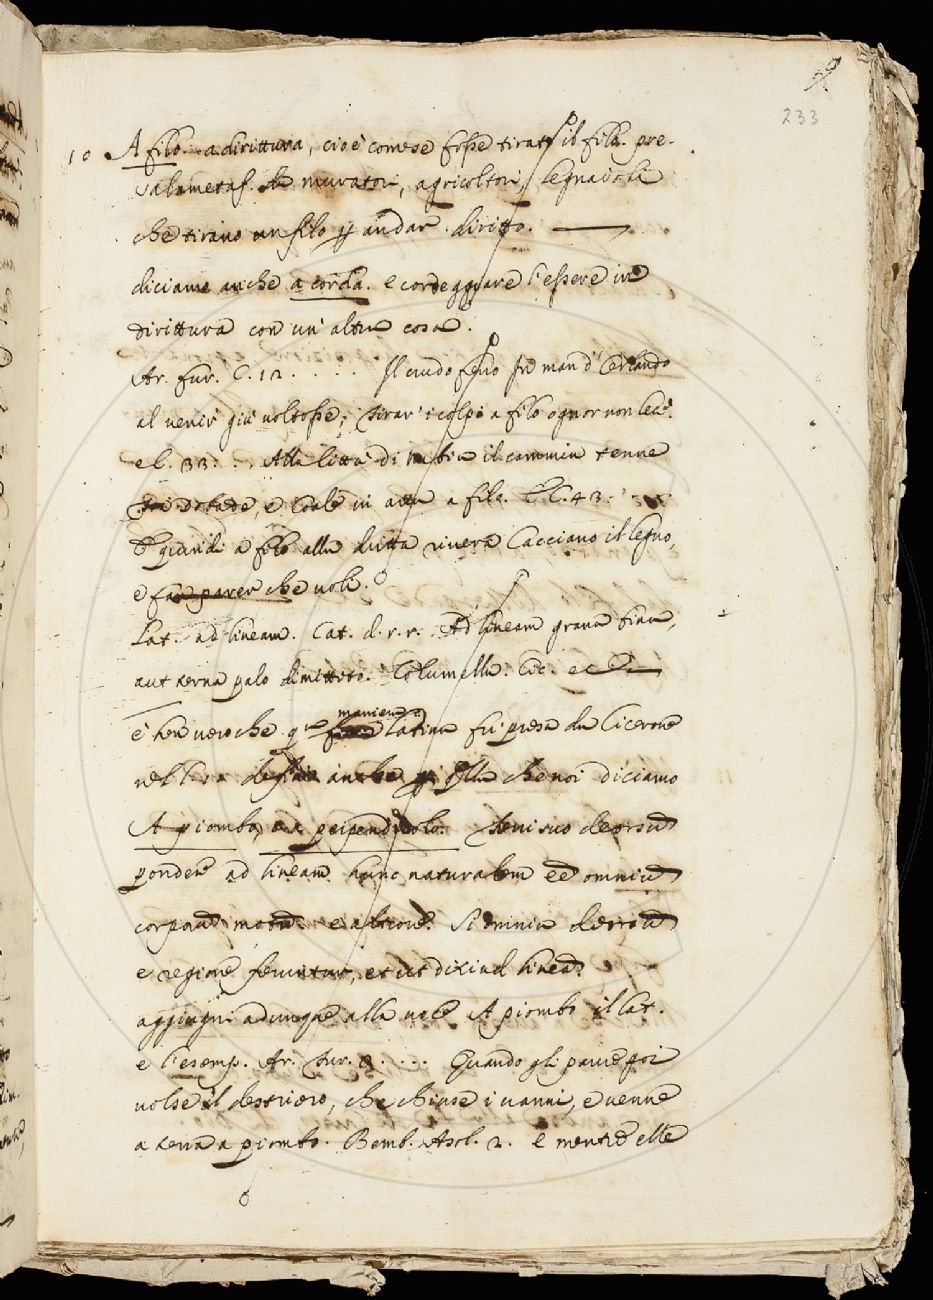 233
10 A filo. a dirittura, cioè come se fosse tirato il filo. pre-
sa la metaf. da muratori, agricoltori, legnaioli
che tirano un filo p andar diritto.
diciamo anche a corda. e cordeggiare l'essere in
dirittura con un' altra cosa.
Ar. fur. C. 12 . . . . Il crudo fero in man d'Orlando
al venir giù voltosse; tirar' i colpi a filo ognor non lece.
e l. 33. . . Alla Città di il cammin tenne
e cala in a filo. E C. 43.
E quindi a filo alla dritta riviera Cacciano il legno,
e fan parer che voli.
Lat. ad lineam. Cat. d. r. r. Ad lineam grana bina,
aut terna palo dimittito. Columella. Cic. ec
è ben vero che q.ta maniera latina fu presa da Cicerone
nel anche p q.lla che noi diciamo
A piombo, a perpendicolo. deorsum
pondere ad lineam hunc naturalem ee omnium
corporum motum e altrove. Si omnia deorsum
e regione ferentur, et ut dixi ad lineam
aggiugni adunque alla voce A piombo il lat.
e l'esemp. Ar. fur. . . . Quando gli parve poi
volse il destriero, che chiuse i vanni, e venne
a terra a piombo. Bemb. Asol. 2. e mentre elle